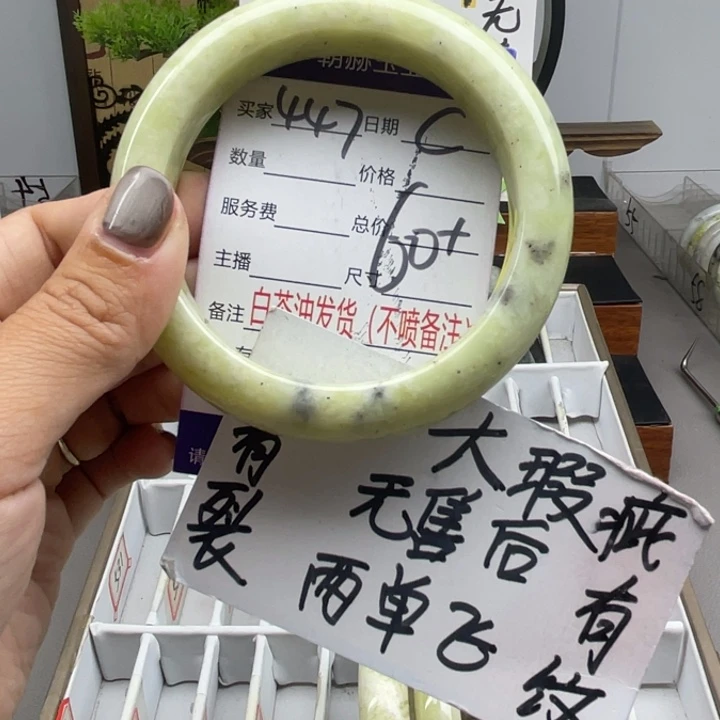 无
买家 447 日期 C
数量 价格
服务费 总价 60+
主播 尺寸
备注 白茶油发货（不喷备注
有
请
有裂
大瑕疵
无售后
有纹
两单飞